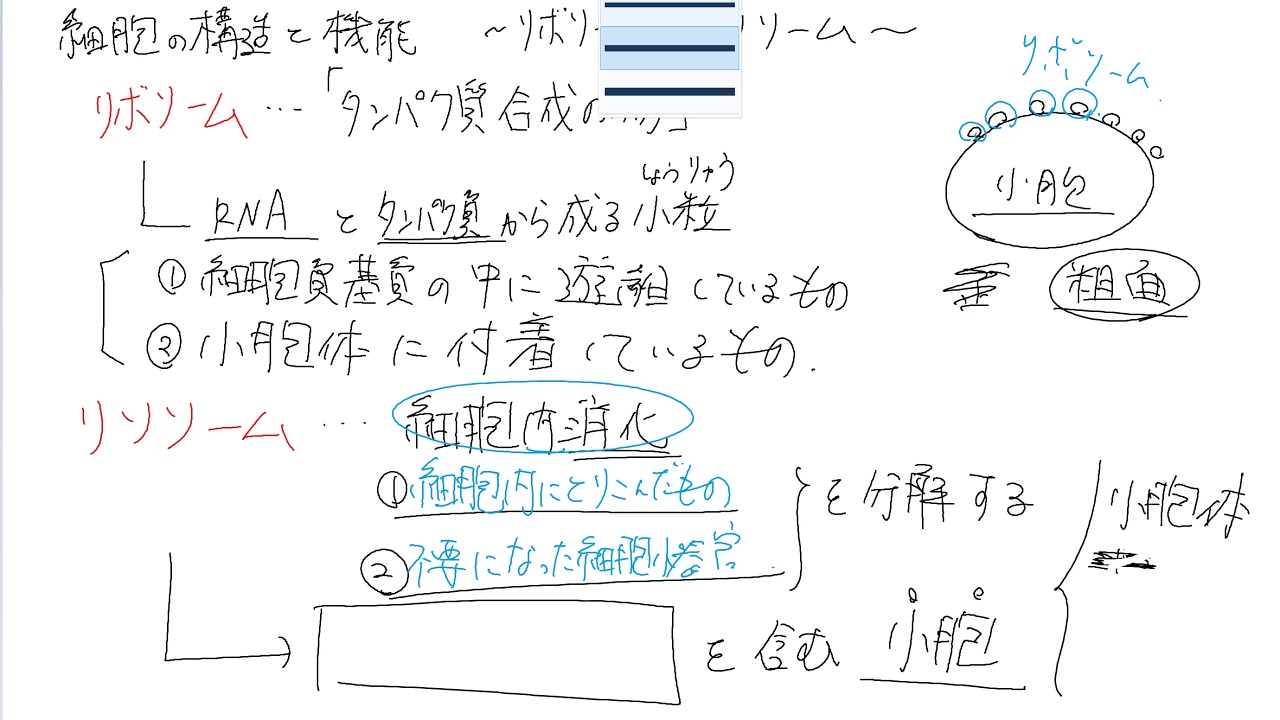 細胞の構造と機能 ～リボソーム～
リボソーム … 「タンパク質合成の
しょうりゅう
RNA と タンパク質 から成る小粒
① 細胞質基質の中に遊離しているもの
② 小胞体に付着しているもの.
リソソーム … 細胞内消化
① 細胞内にとりこんだもの
② 不要になった細胞小器官
を分解する
を含む 小胞
リボソーム
小胞
粗面
小胞体